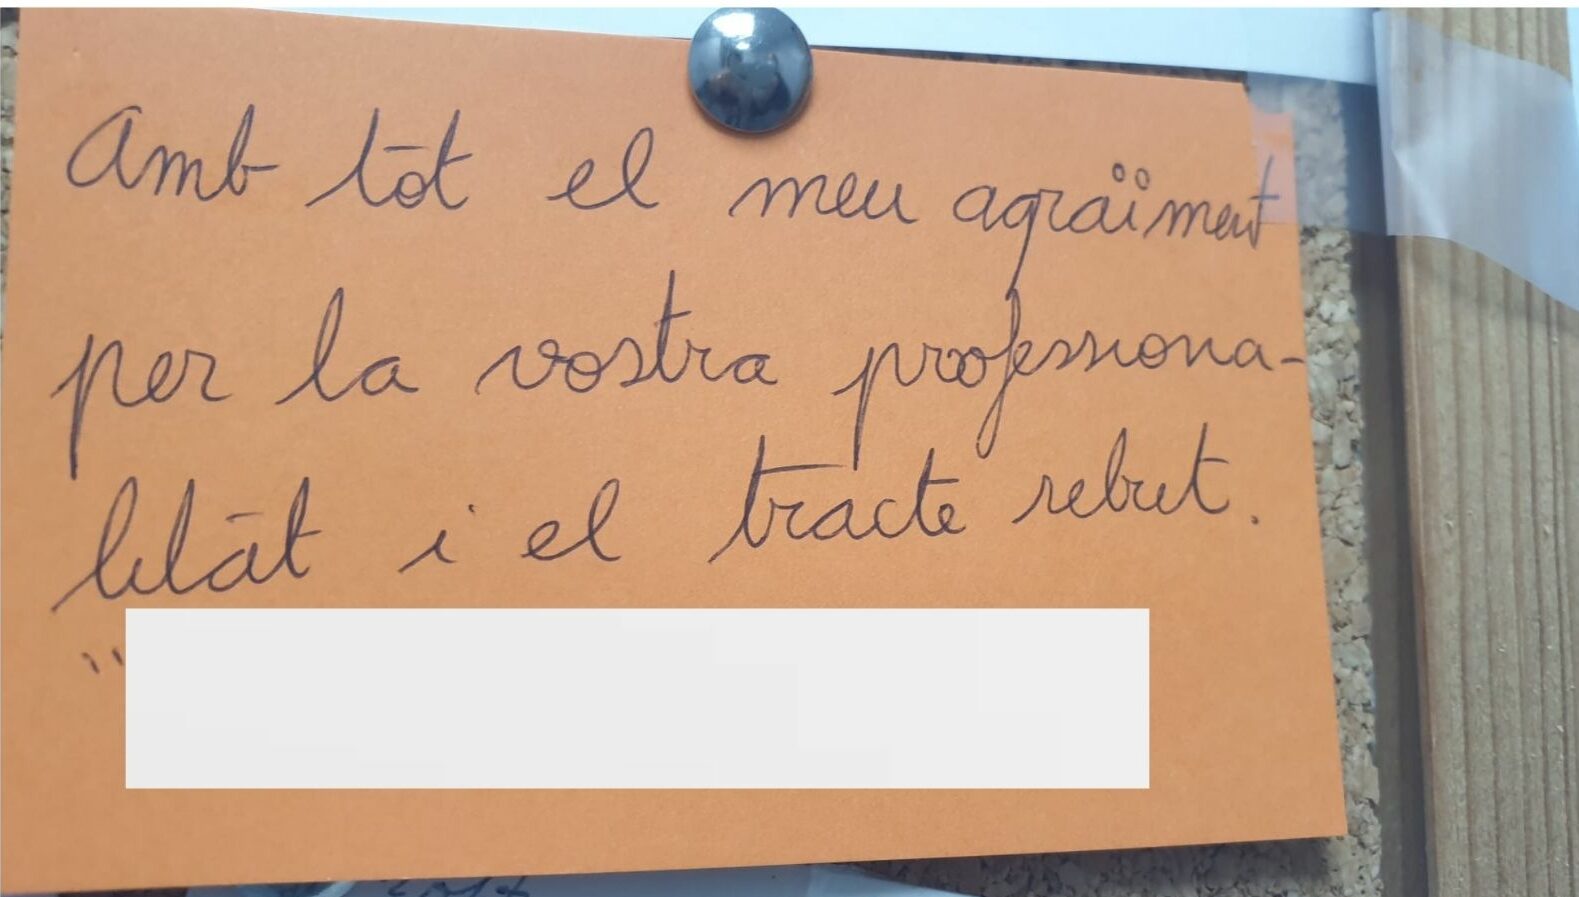 Amb tot el meu agraïment
per la vostra professiona-
litat i el tracte rebut.